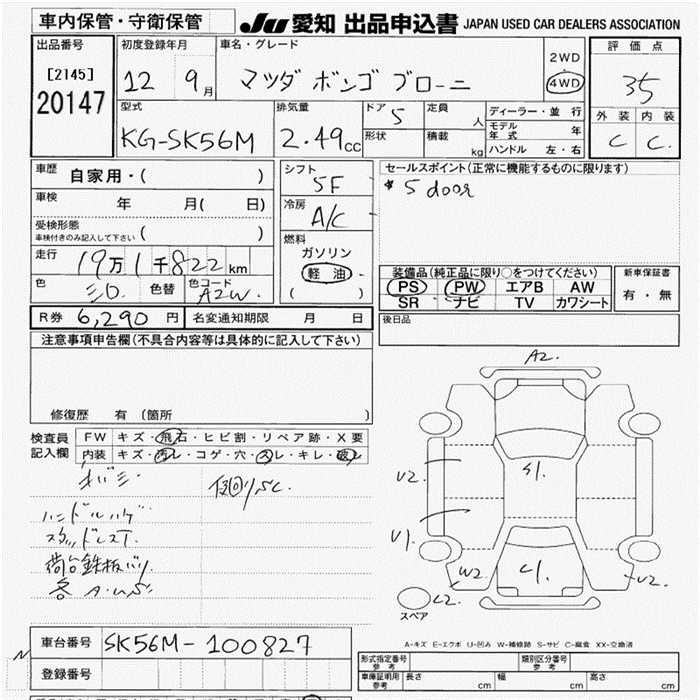 車内保管・守衛保管
JU 愛知 出品申込書 JAPAN USED CAR DEALERS ASSOCIATION
出品番号
[2145]
20147
初度登録年月
12 9月
車名・グレード
マツダ ボンゴ ブローニ
2WD
4WD
評価点
3.5
外装 内装
C C
型式
KG-SK56M
排気量
2.49cc
ドア 5
形状
定員 人
積載 kg
ディーラー・並行
モデル年式 年
ハンドル 左・右
車歴
自家用・( )
車検 年 月( 日)
受検形態
車検付きのみ記入して下さい ( )
走行 19万1千822km
色 色替 色コード
A2W
シフト
5F
冷房
A/C
燃料
ガソリン
軽油
( )
セールスポイント(正常に機能するものに限ります)
* 5 door
装備品(純正品に限り○をつけてください)
PS PW エアB AW
SR ナビ TV カワシート
新車保証書
有・無
R券 6,290円 名変通知期限 月 日
後日品
注意事項申告欄(不具合内容等は具体的に記入して下さい)
修復歴 有(箇所 )
検査員記入欄
FW キズ・飛石・ヒビ割・リペア跡・X要
内装 キズ・汚レ・コゲ・穴・スレ・キレ・破レ
ハンドルハゲ
スタッドレスT.
荷台鉄板バリ
各 A.U.S
A2.
S1.
U2.
U1.
W2
C1.
U2.
C2.
スペア
A-キズ E-エクボ U-凹み W-補修跡 S-サビ C-腐食 XX-交換済
車台番号 SK56M-100827
登録番号
形式指定番号 参考
類別区分番号 参考
車庫証明用 参考
長さ cm 幅 cm 高さ cm